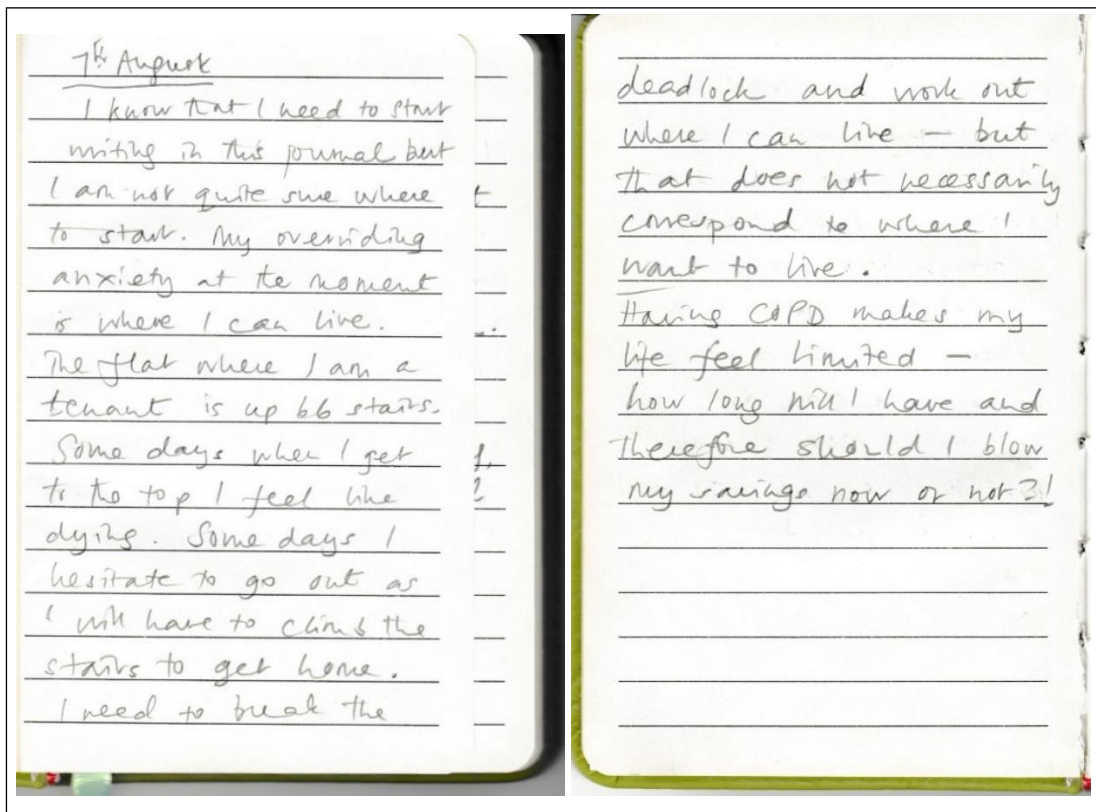 7th August
I know that I need to start
writing in this journal but
I am not quite sure where
to start. My overriding
anxiety at the moment
is where I can live.
The flat where I am a
tenant is up 66 stairs.
Some days when I get
to the top I feel like
dying. Some days I
hesitate to go out as
I will have to climb the
stairs to get home.
I need to break the
deadlock and work out
where I can live – but
that does not necessarily
correspond to where I
want to live.
Having COPD makes my
life feel limited –
how long will I have and
therefore should I blow
my savings now or not?!